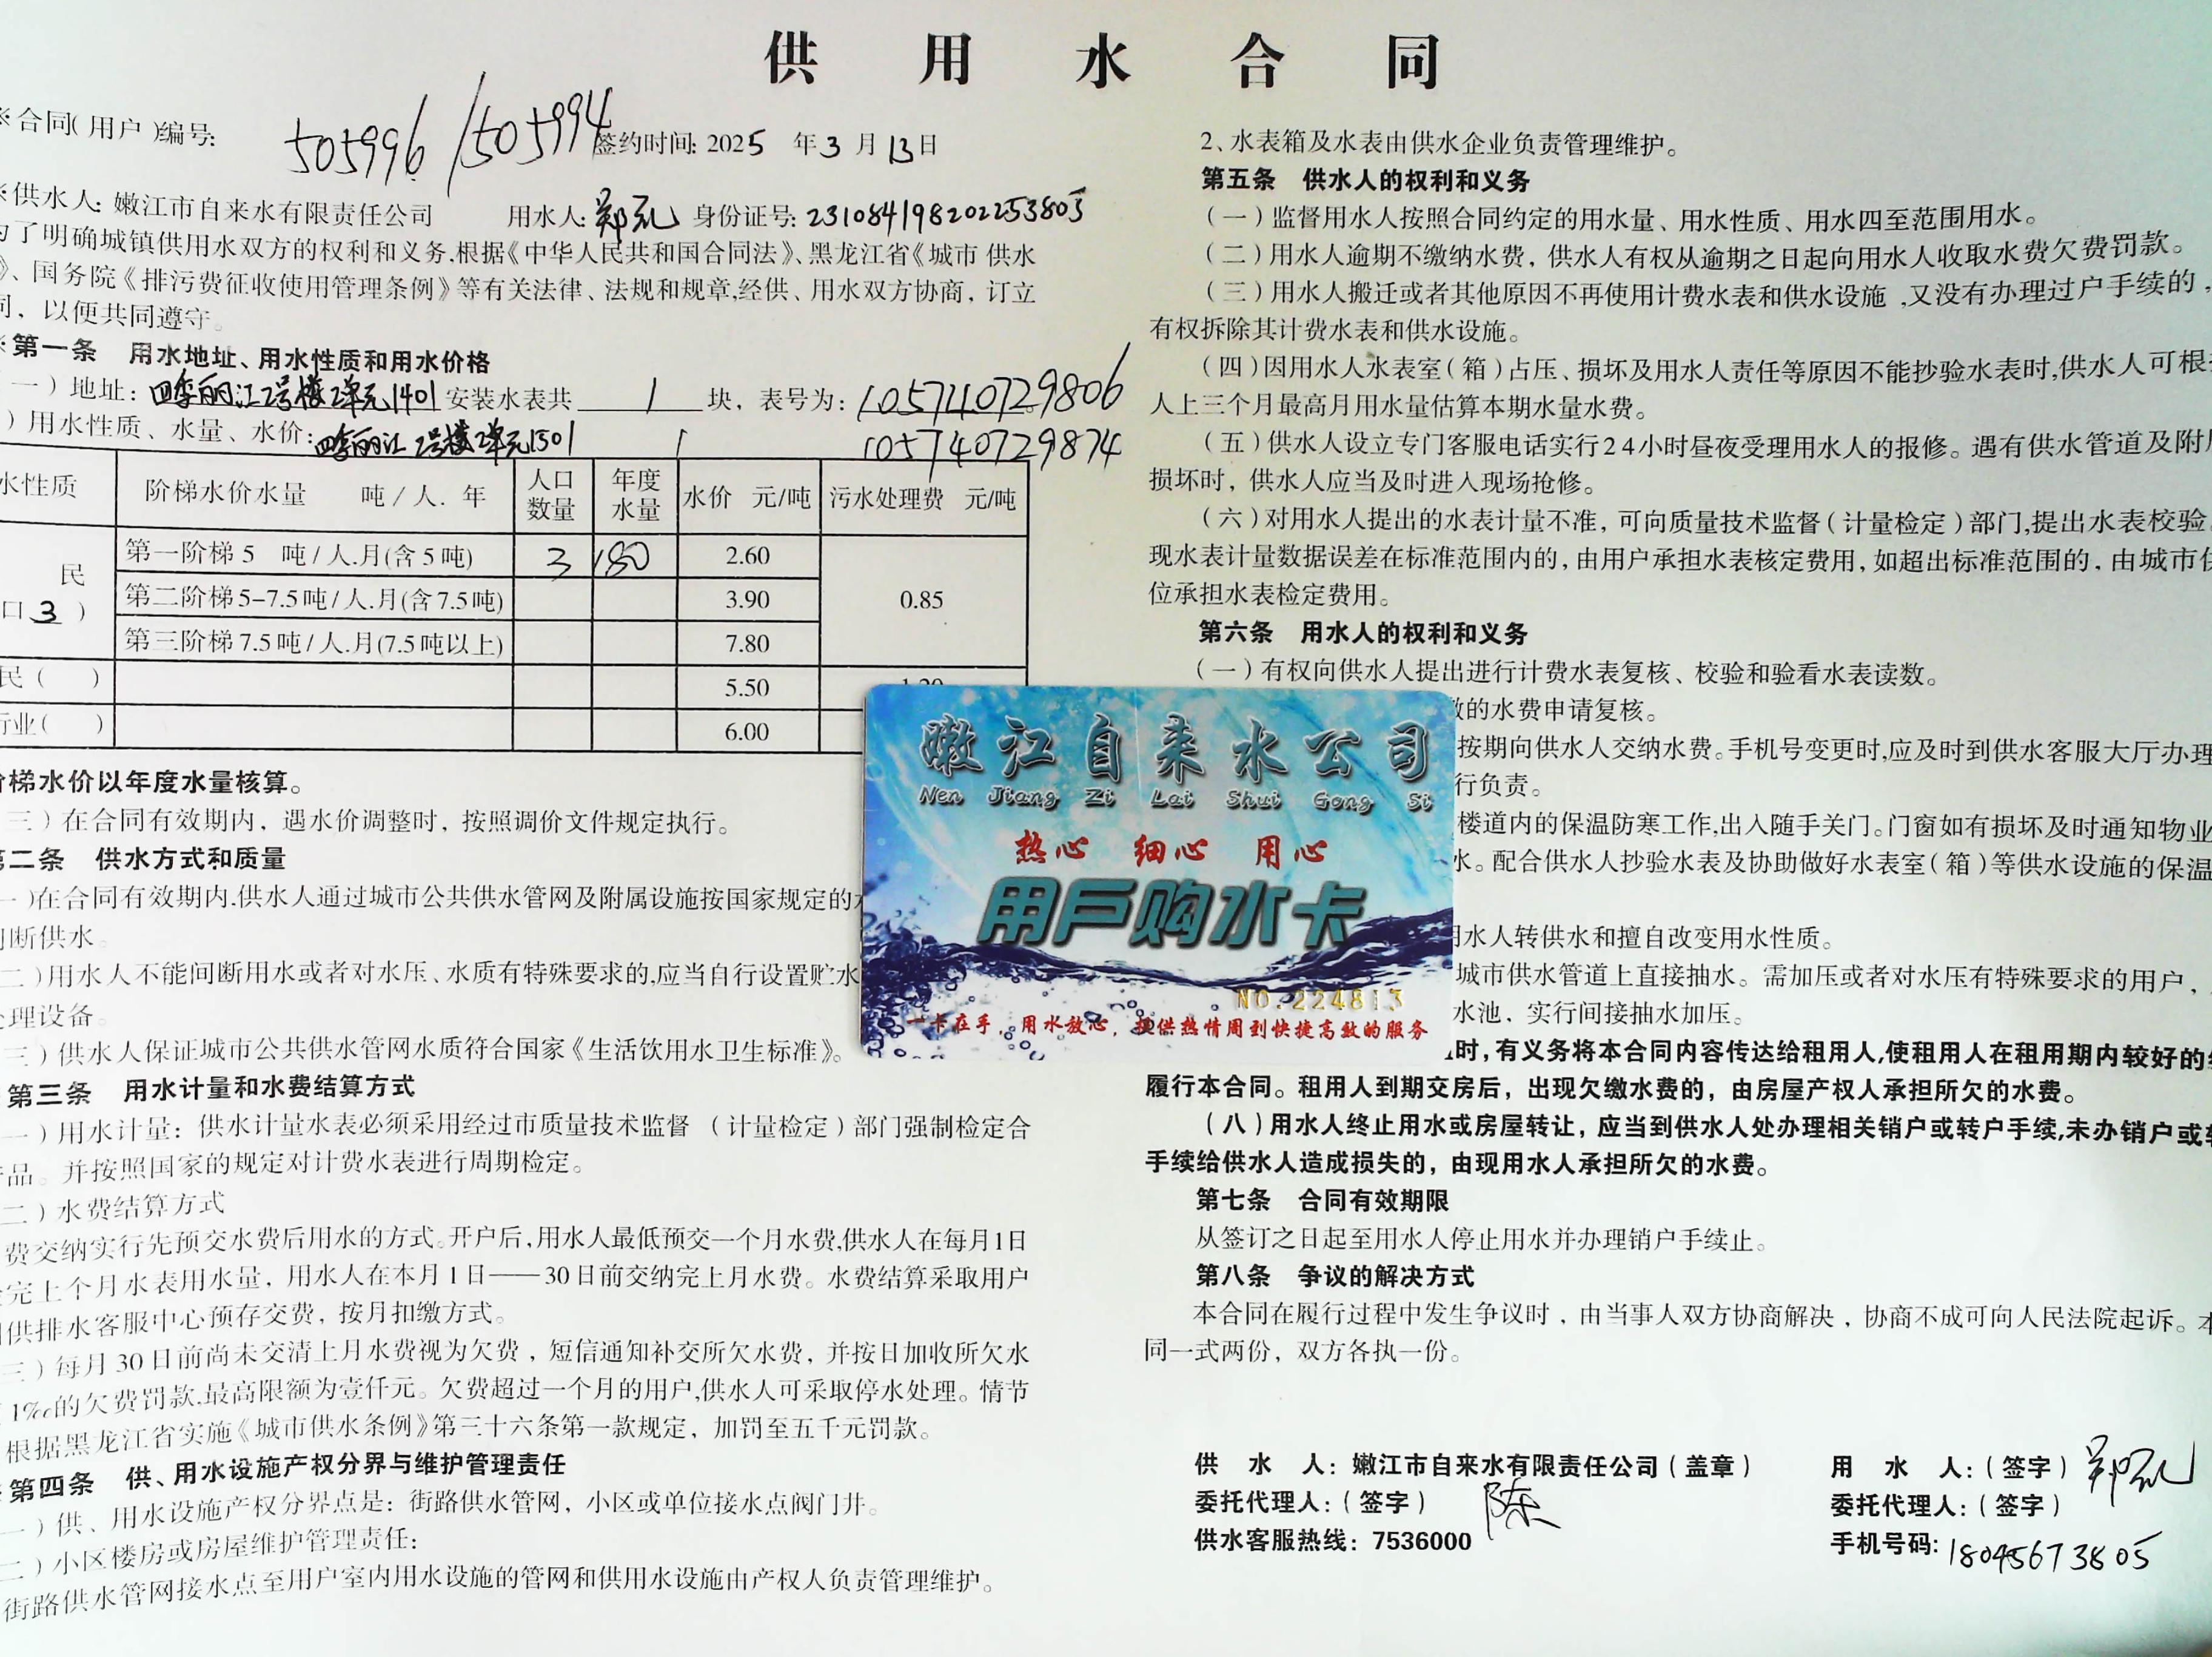 供用水合同
※合同(用户)编号: 505996/505994 签约时间: 2025年3月13日
※供水人: 嫩江市自来水有限责任公司 用水人: 郑 身份证号: 231084198202253805
为了明确城镇供用水双方的权利和义务.根据《中华人民共和国合同法》、黑龙江省《城市 供水
》、国务院《排污费征收使用管理条例》等有关法律、法规和规章,经供、用水双方协商，订立
同，以便共同遵守。
※第一条 用水地址、用水性质和用水价格
一）地址: 四季丽江2号楼2单元1401 安装水表共 1 块，表号为: 105740729806
）用水性质、水量、水价: 四季丽江2号楼2单元1501 1 105740729874
水性质 阶梯水价水量 吨/人.年 人口数量 年度水量 水价 元/吨 污水处理费 元/吨
民 第一阶梯 5 吨/人.月(含5吨) 3 180 2.60
口 3 ） 第二阶梯5-7.5吨/人.月(含7.5吨) 3.90 0.85
第三阶梯7.5吨/人.月(7.5吨以上) 7.80
民（ ） 5.50 1.20
行业（ ） 6.00
阶梯水价以年度水量核算。
三）在合同有效期内，遇水价调整时，按照调价文件规定执行。
第二条 供水方式和质量
一)在合同有效期内.供水人通过城市公共供水管网及附属设施按国家规定的
间断供水。
二)用水人不能间断用水或者对水压、水质有特殊要求的,应当自行设置贮水
处理设备。
三）供水人保证城市公共供水管网水质符合国家《生活饮用水卫生标准》。
第三条 用水计量和水费结算方式
一）用水计量：供水计量水表必须采用经过市质量技术监督（计量检定）部门强制检定合
品。并按照国家的规定对计费水表进行周期检定。
二）水费结算方式
费交纳实行先预交水费后用水的方式。开户后,用水人最低预交一个月水费,供水人在每月1日
完上个月水表用水量，用水人在本月1日——30日前交纳完上月水费。水费结算采取用户
供排水客服中心预存交费，按月扣缴方式。
三）每月30日前尚未交清上月水费视为欠费，短信通知补交所欠水费，并按日加收所欠水
1‰的欠费罚款.最高限额为壹仟元。欠费超过一个月的用户,供水人可采取停水处理。情节
根据黑龙江省实施《城市供水条例》第三十六条第一款规定，加罚至五千元罚款。
※第四条 供、用水设施产权分界与维护管理责任
一）供、用水设施产权分界点是：街路供水管网，小区或单位接水点阀门井。
二）小区楼房或房屋维护管理责任:
街路供水管网接水点至用户室内用水设施的管网和供用水设施由产权人负责管理维护。
2、水表箱及水表由供水企业负责管理维护。
第五条 供水人的权利和义务
（一）监督用水人按照合同约定的用水量、用水性质、用水四至范围用水。
（二）用水人逾期不缴纳水费，供水人有权从逾期之日起向用水人收取水费欠费罚款。
（三）用水人搬迁或者其他原因不再使用计费水表和供水设施,又没有办理过户手续的,
有权拆除其计费水表和供水设施。
（四）因用水人水表室（箱）占压、损坏及用水人责任等原因不能抄验水表时,供水人可根
人上三个月最高月用水量估算本期水量水费。
（五）供水人设立专门客服电话实行24小时昼夜受理用水人的报修。遇有供水管道及附
损坏时，供水人应当及时进入现场抢修。
（六）对用水人提出的水表计量不准，可向质量技术监督（计量检定）部门,提出水表校验
现水表计量数据误差在标准范围内的，由用户承担水表核定费用，如超出标准范围的，由城市
位承担水表检定费用。
第六条 用水人的权利和义务
（一）有权向供水人提出进行计费水表复核、校验和验看水表读数。
的水费申请复核。
按期向供水人交纳水费。手机号变更时,应及时到供水客服大厅办理
行负责。
楼道内的保温防寒工作,出入随手关门。门窗如有损坏及时通知物业
水。配合供水人抄验水表及协助做好水表室（箱）等供水设施的保温
用水人转供水和擅自改变用水性质。
城市供水管道上直接抽水。需加压或者对水压有特殊要求的用户，
水池，实行间接抽水加压。
时,有义务将本合同内容传达给租用人,使租用人在租用期内较好的
履行本合同。租用人到期交房后，出现欠缴水费的，由房屋产权人承担所欠的水费。
（八）用水人终止用水或房屋转让，应当到供水人处办理相关销户或转户手续,未办销户或
手续给供水人造成损失的，由现用水人承担所欠的水费。
第七条 合同有效期限
从签订之日起至用水人停止用水并办理销户手续止。
第八条 争议的解决方式
本合同在履行过程中发生争议时，由当事人双方协商解决，协商不成可向人民法院起诉。本
同一式两份，双方各执一份。
供 水 人：嫩江市自来水有限责任公司（盖章） 用 水 人:（签字）郑
委托代理人:（签字） 陈 委托代理人:（签字）
供水客服热线：7536000 手机号码: 18045673805
嫩江自来水公司
Nen Jiang Zi Lai Shui Gong Si
热心 细心 用心
用户购水卡
NO.224813
一卡在手，用水放心，提供热情周到快捷高效的服务